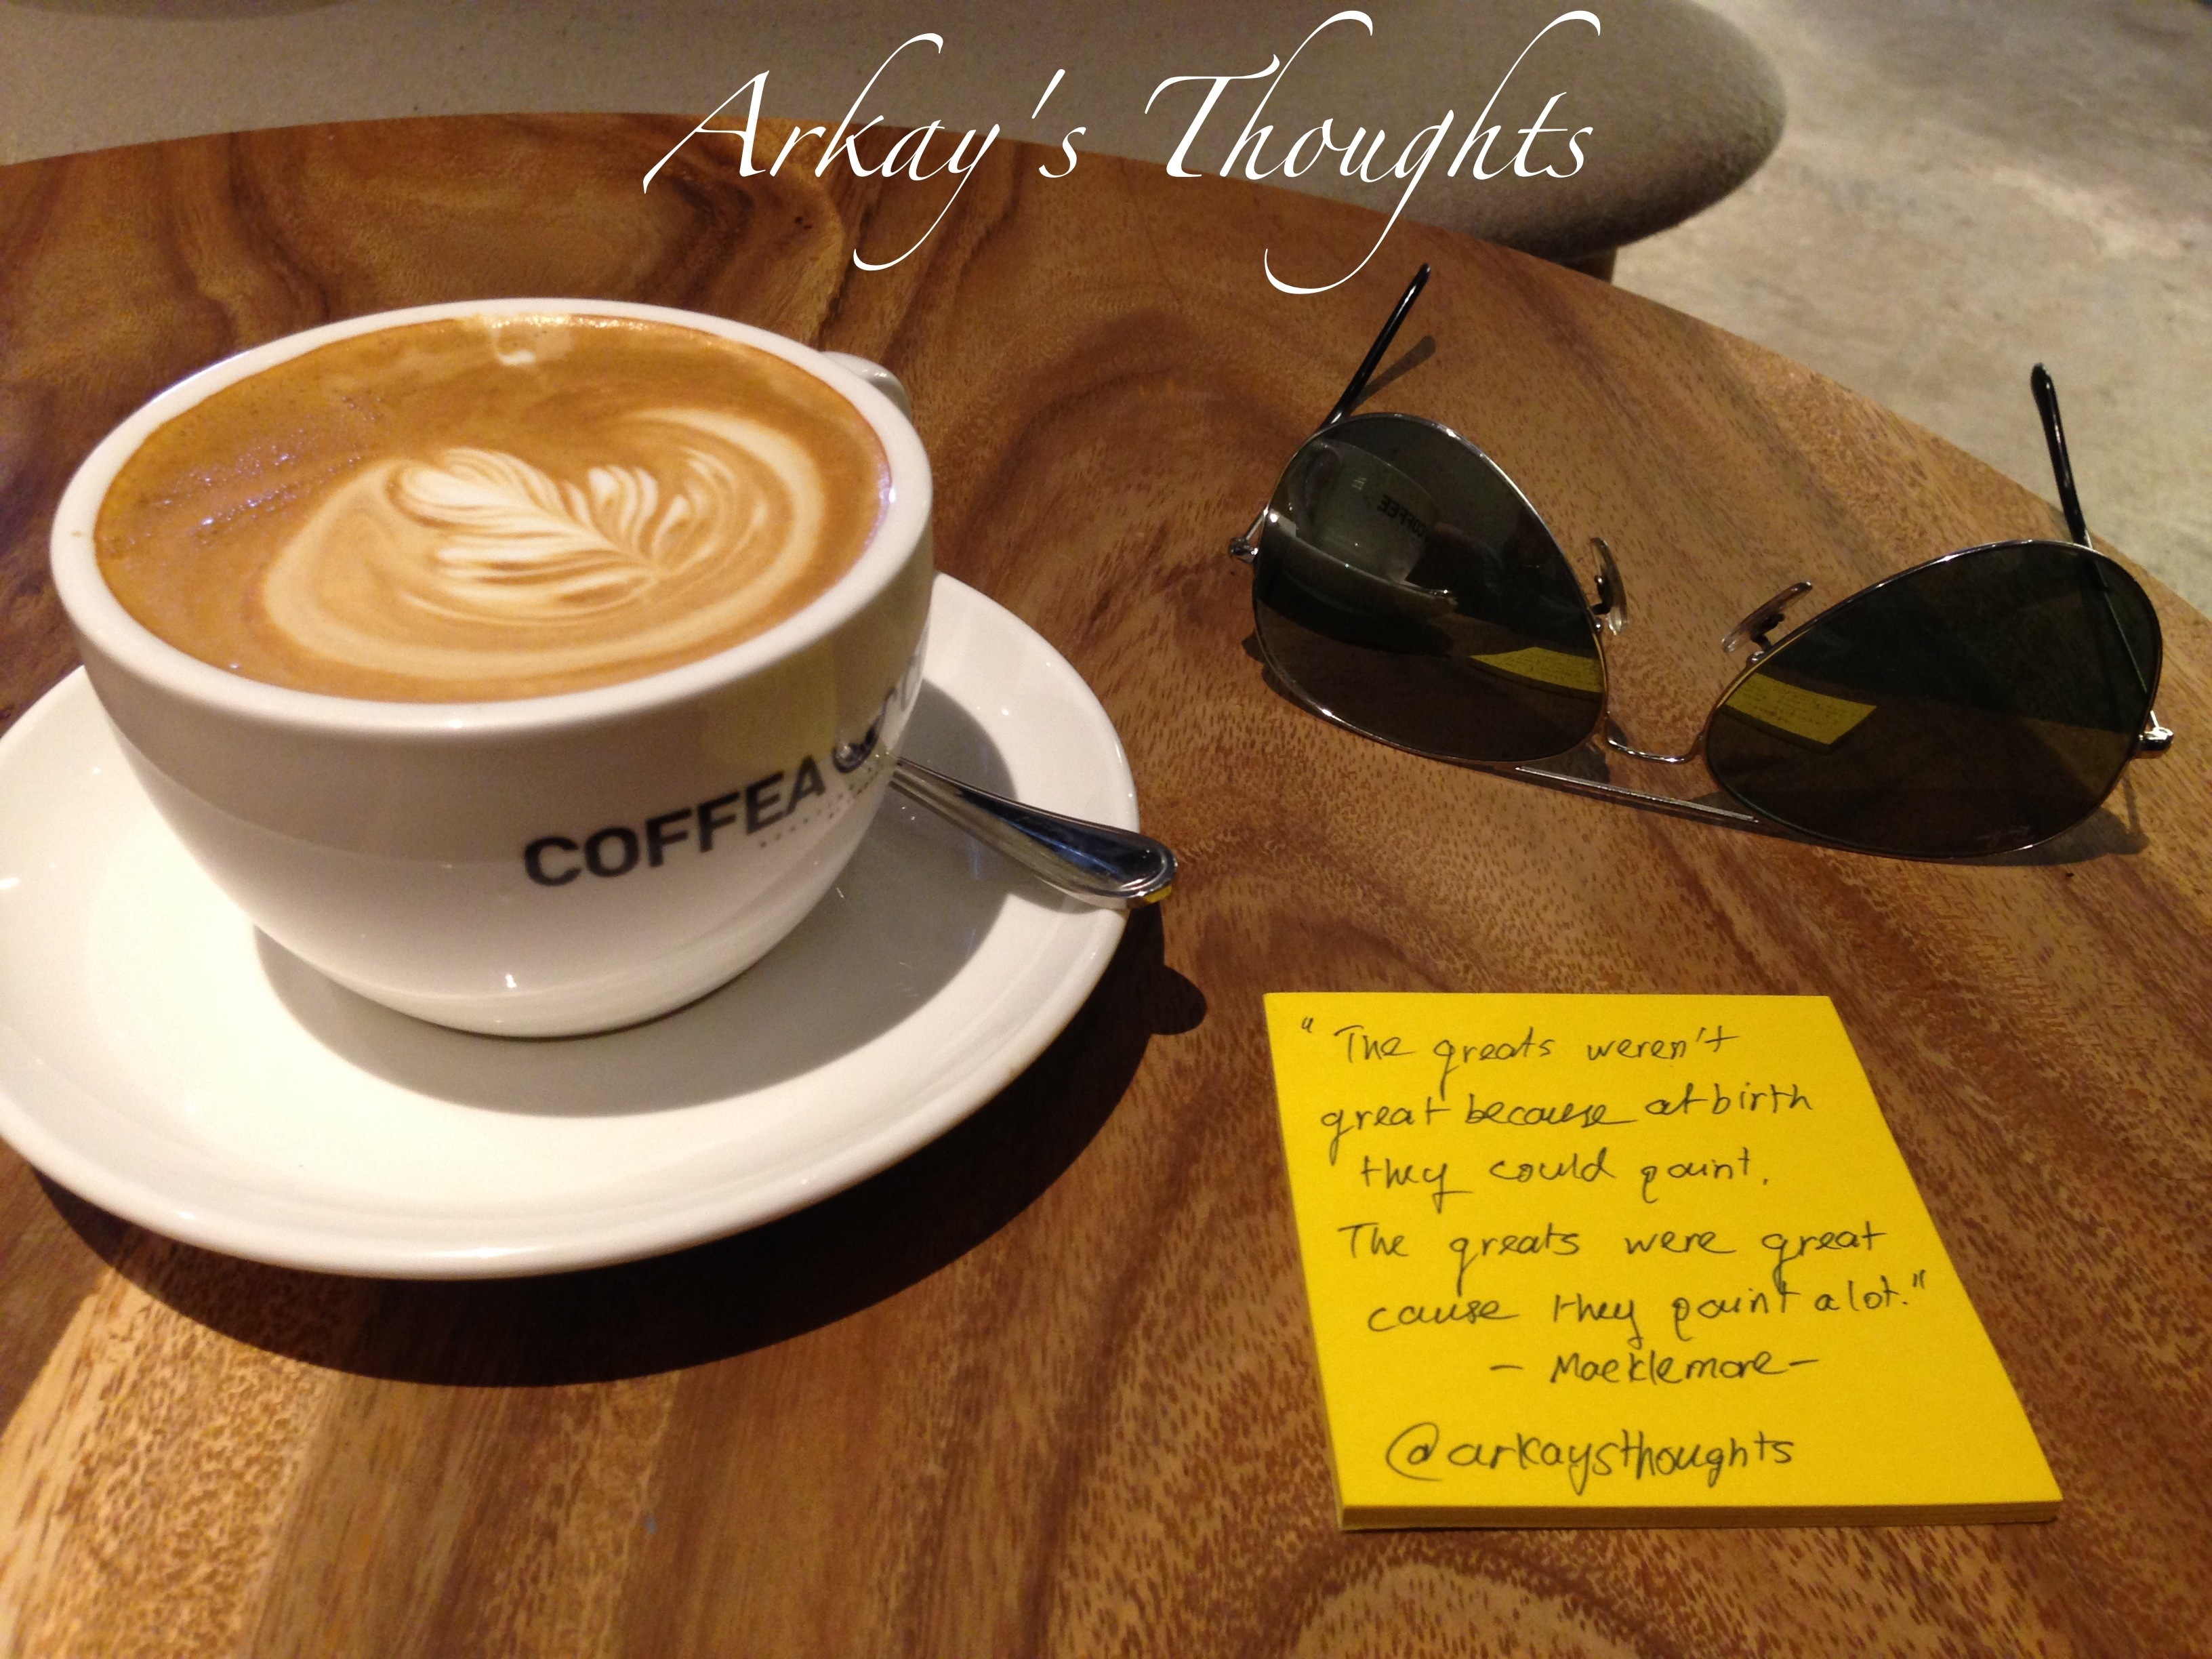 Arkay's Thoughts
COFFEA
COFFEE
"The greats weren't
great because at birth
they could paint.
The greats were great
cause they paint a lot."
- Macklemore -
@arkaysthoughts